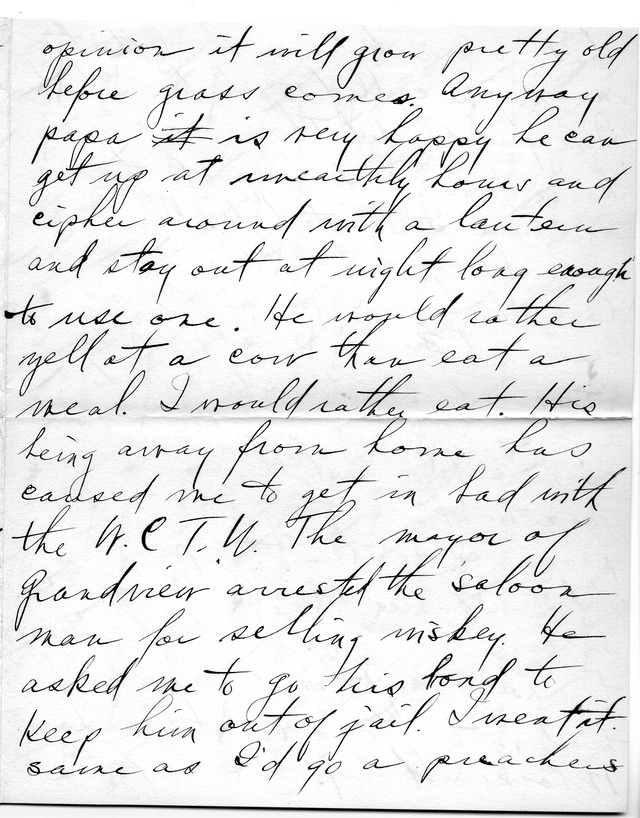 opinion it will grow pretty old
before grass comes. Anyway
papa it is very happy he can
get up at unearthly hours and
cipher around with a lantern
and stay out at night long enough
to use one. He would rather
yell at a cow than eat a
meal. I would rather eat. His
being away from home has
caused me to get in bad with
the W.C.T.U. The mayor of
Grandview arrested the saloon
man for selling wiskey. He
asked me to go his bond to
keep him out of jail. I went it.
same as I'd go a preachers